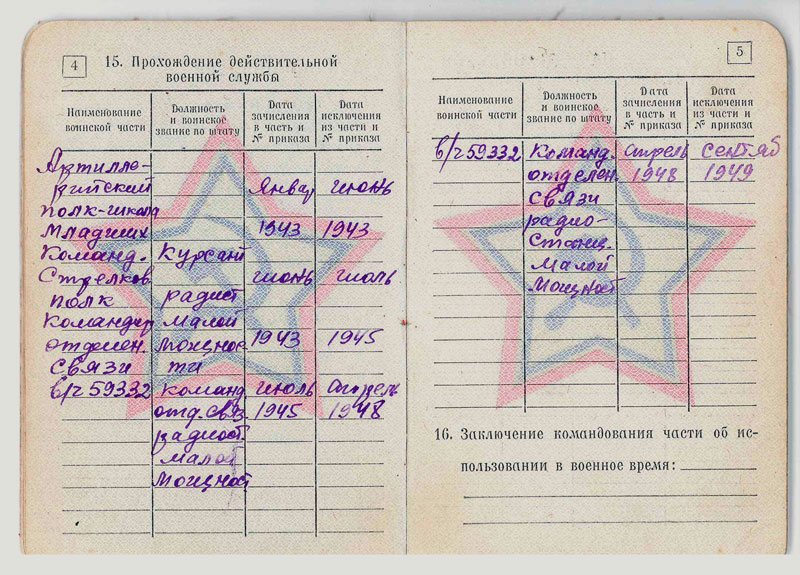 4
15. Прохождение действительной
военной службы
Наименование
воинской части
Должность
и воинское
звание по штату
Дата
зачисления
в часть и
№ приказа
Дата
исключения
из части и
№ приказа
Артилле-
рийский Январ июнь
полк-школа
Младших 1943 1943
Команд. Курсант
Стрелков июнь июль
полк радист
Командир малой
отделен. мощнос 1943 1945
связи ти
в/ч 59332 команд. июль апрель
отд. связ. 1945 1948
радиост.
малой
мощност
5
Наименование
воинской части
Должность
и воинское
звание по штату
Дата
зачисления
в часть и
№ приказа
Дата
исключения
из части и
№ приказа
в/ч 59332 Команд. апрель сентяб
отделен. 1948 1949
связи
радио-
станц.
малой
мощност
16. Заключение командования части об ис-
пользовании в военное время: